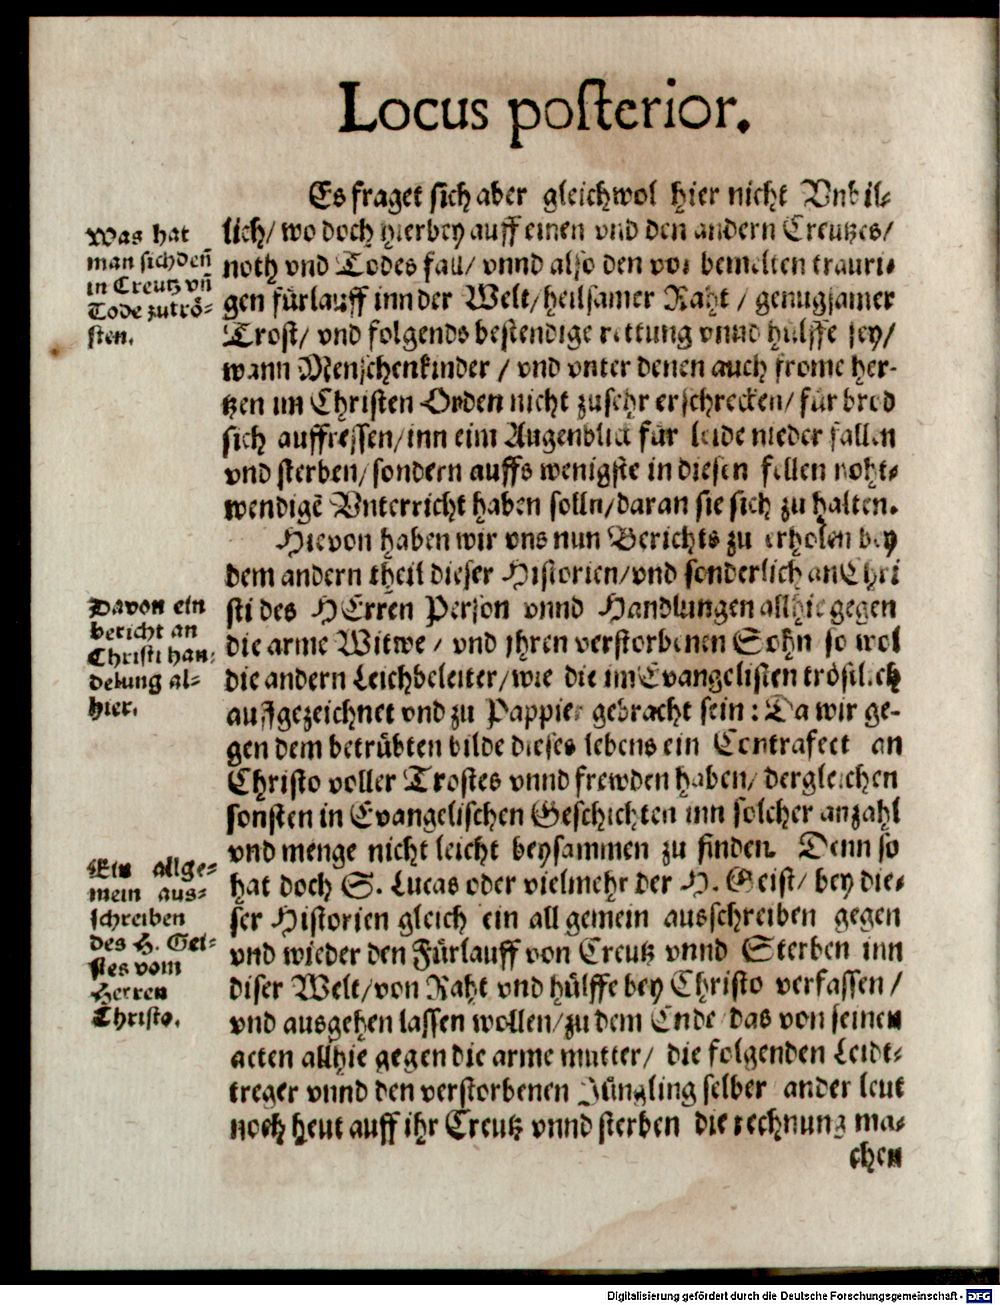 Locus posterior.
Es fraget sich aber gleichwol hier nicht Vnbil-
lich/ wo doch hierbey auff einen vnd den andern Creutzes/
noth vnd Todes fall/ vnnd also den vor bemelten trauri-
gen fürlauff inn der Welt/ heilsamer Raht / genugsamer
Trost/ vnd folgends bestendige rettung vnnd hülffe sey/
wann Menschenkinder / vnd vnter denen auch frome her-
tzen im Christen Orden nicht zusehr erschrecken/ für
sich auffressen/ inn eim Augenblick für leide nieder fallen
vnd sterben/ sondern auffs wenigste in diesen fellen noht-
wendigē Vnterricht haben solln/ daran sie sich zu halten.
Hievon haben wir vns nun Berichts zu erholen bey
dem andern theil dieser Historien/ vnd sonderlich an Chri
sti des HErren Person vnnd Handlungen allhie gegen
die arme Witwe / vnd ihren verstorbenen Sohn so wol
die andern Leichbeleiter/ wie die im Evangelisten tröstlich
auffgezeichnet vnd zu Pappier gebracht sein : Da wir ge-
gen dem betrübten bilde dieses lebens ein Contrafect an
Christo voller Trostes vnnd frewden haben/ dergleichen
sonsten in Evangelischen Geschichten inn solcher anzahl
vnd menge nicht leicht beysammen zu finden. Denn so
hat doch S. Lucas oder vielmehr der H. Geist/ bey die-
ser Historien gleich ein all gemein ausschreiben gegen
vnd wieder den Fürlauff von Creutz vnnd Sterben inn
diser Welt/ von Raht vnd hülffe bey Christo verfassen /
vnd ausgehen lassen wollen/ zu dem Ende das von seinen
acten allhie gegen die arme mutter/ die folgenden Leidt-
treger vnnd den verstorbenen Jüngling selber ander leut
noch heut auff ihr Creutz vnnd sterben die rechnung ma-
chen
Was hat
man sich deñ
in Creutz vñ
Tode zutrö-
sten.
Davon ein
bericht an
Christi han-
delung al-
hier.
Ein allge-
mein aus-
schreiben
des H. Gei-
stes vom
Herren
Christo.
Digitalisierung gefördert durch die Deutsche Forschungsgemeinschaft - DFG